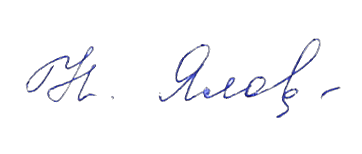 Н. Ялов-